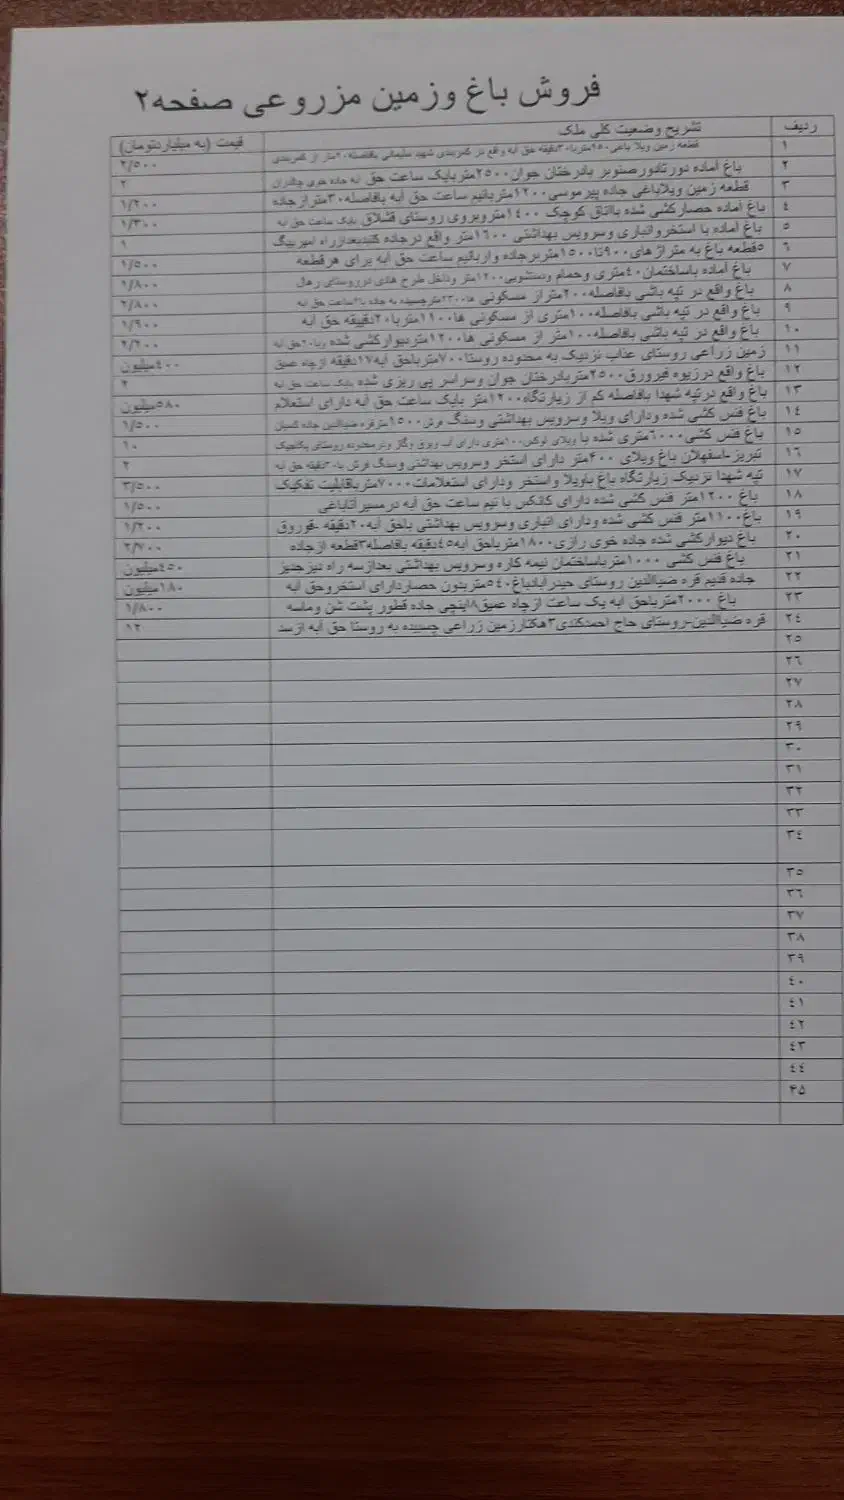 فروش باغ وزمین مزروعی صفحه۲
ردیف تشریح وضعیت کلی ملک قیمت (به میلیاردتومان)
۱ قطعه زمین ویلا باغی ۴۵۰متربا۳۰دقیقه حق آبه واقع در کمربندی شهید سلیمانی بافاصله۲۰متر از کمربندی ۲/۵۰۰
۲ باغ آماده دورتادورصنوبر بادرختان جوان۲۵۰۰متربایک ساعت حق آبه جاده خوی چالدران ۲
۳ قطعه زمین ویلاباغی جاده پیرموسی۱۲۰۰متربانیم ساعت حق آبه بافاصله۳۰مترازجاده ۱/۲۰۰
۴ باغ آماده حصارکشی شده بااتاق کوچک ۱۴۰۰متروبروی روستای قشلاق بایک ساعت حق آبه ۱/۳۰۰
۵ باغ آماده با استخروانباری وسرویس بهداشتی ۱۶۰۰متر واقع درجاده گنبدبعدازراه امیربیگ ۱
۶ ۵قطعه باغ به متراژهای۹۰۰تا۱۵۰۰متربرجاده وازبانیم ساعت حق آبه برای هرقطعه ۱/۵۰۰
۷ باغ آماده باساختمان۴۰متری وحمام ودستشویی۱۲۰۰متر وداخل طرح هادی درروستای رهال ۱/۸۰۰
۸ باغ واقع در تپه باشی بافاصله۲۰۰متراز مسکونی ها۲۳۰۰مترچسبیده به جاده با۲ساعت حق آبه ۲/۸۰۰
۹ باغ واقع در تپه باشی بافاصله۱۰۰متری از مسکونی ها۱۱۰۰متربا۲۰دقییقه حق آبه ۱/۹۰۰
۱۰ باغ واقع در تپه باشی بافاصله۱۰۰متر از مسکونی ها۱۲۰۰متردیوارکشی شده وبا۲۰حق آبه ۲/۲۰۰
۱۱ زمین زراعی روستای عذاب نزدیک به محدوده روستا۷۰۰مترباحق آبه۱۷دقیقه ازچاه عمیق ۴۰۰میلیون
۱۲ باغ واقع درزیوه فیرورق۲۵۰۰متربادرختان جوان وسراسر پی ریزی شده بایک ساعت حق آبه ۲
۱۳ باغ واقع درتپه شهدا بافاصله کم از زیارتگاه۱۲۰۰متر بایک ساعت حق آبه دارای استعلام ۵۸۰میلیون
۱۴ باغ فنس کشی شده ودارای ویلا وسرویس بهداشتی وسنگ فرش۱۵۰۰مترقره ضیاالدین جاده ۱/۵۰۰
۱۵ باغ فنس کشی۶۰۰۰متری شده با ویلای لوکس۱۰۰متری دارای آب وبرق وگاز ودرمحدوده روستای پکاجیک ۱۰
۱۶ تبریز-اسفهلان باغ ویلای ۴۰۰متر دارای استخر وسرویس بهداشتی وسنگ فرش با۳۰دقیقه حق آبه ۲
۱۷ تپه شهدا نزدیک زیارتگاه باغ باویلا واستخر ودارای استعلامات۷۰۰۰مترباقابلیت تفکیک ۳/۵۰۰
۱۸ باغ ۱۲۰۰متر فنس کشی شده دارای کانکس با نیم ساعت حق آبه درمسیرآتاباغی ۱/۵۰۰
۱۹ باغ۱۱۰۰متر فنس کشی شده ودارای انباری وسرویس بهداشتی باحق آبه۲۰دقیقه -قوروق ۱/۲۰۰
۲۰ باغ دیوارکشی شده جاده خوی رازی۱۸۰۰مترباحق آبه۴۵دقیقه بافاصله۳قطعه ازجاده ۲/۷۰۰
۲۱ باغ فنس کشی ۱۰۰۰مترباساختمان نیمه کاره وسرویس بهداشتی بعدازسه راه دیزجدیز ۴۵۰میلیون
۲۲ جاده قدیم قره ضیاالدین روستای حیدرابادباغ۵۴۰متربدون حصاردارای استخروحق آبه ۱۸۰میلیون
۲۳ باغ ۲۰۰۰مترباحق آبه یک ساعت ازچاه عمیق۸اینچی جاده قطور پشت شن وماسه ۱/۸۰۰
۲۴ قره ضیاالدین-روستای حاج احمدکندی۳هکتارزمین زراعی چسبیده به روستا حق آبه ازسد ۱۲
۲۵
۲۶
۲۷
۲۸
۲۹
۳۰
۳۱
۳۲
۳۳
۳۴
۳۵
۳۶
۳۷
۳۸
۳۹
۴۰
۴۱
۴۲
۴۳
۴۴
۴۵